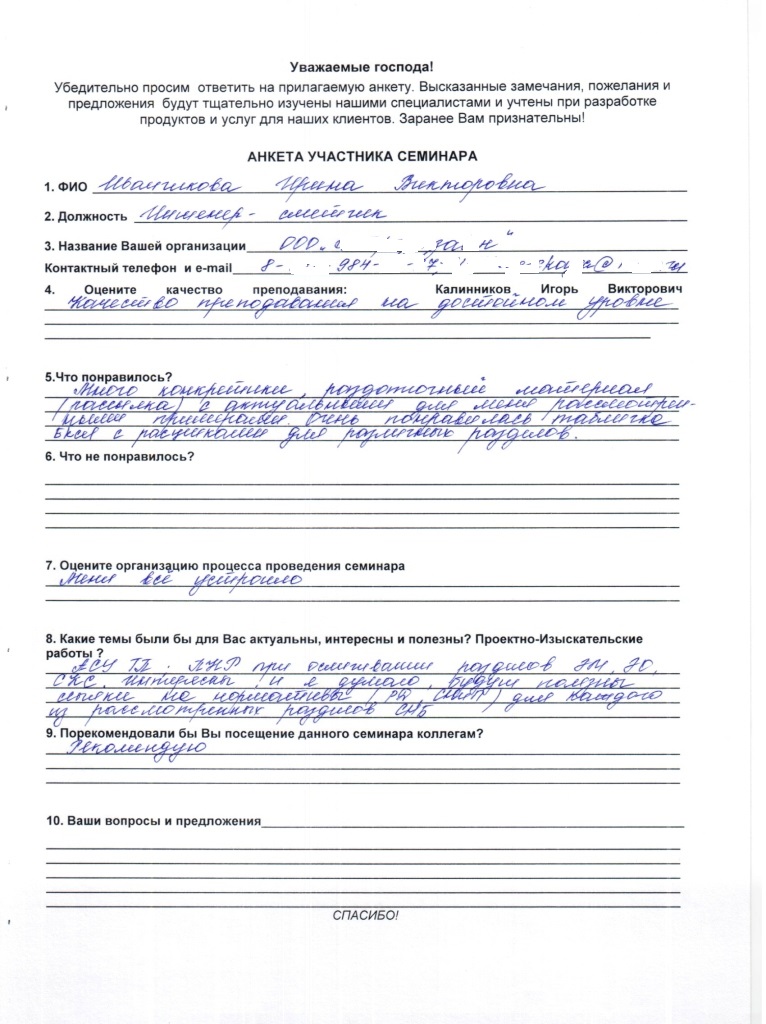 Уважаемые господа!
Убедительно просим ответить на прилагаемую анкету. Высказанные замечания, пожелания и
предложения будут тщательно изучены нашими специалистами и учтены при разработке
продуктов и услуг для наших клиентов. Заранее Вам признательны!
АНКЕТА УЧАСТНИКА СЕМИНАРА
1. ФИО Ирина Викторовна
2. Должность Инженер-сметчик
3. Название Вашей организации ООО
Контактный телефон и e-mail 8- 984- 7
4. Оцените качество преподавания: Калинников Игорь Викторович
Качество преподавания на достойном уровне
5.Что понравилось?
Много конкретики, раздаточный материал
(рассылка) с актуальными для меня рассмотрен-
ными примерами. Очень понравилась табличка
Excel с расценками для различных разделов.
6. Что не понравилось?
7. Оцените организацию процесса проведения семинара
Меня всё устроило
8. Какие темы были бы для Вас актуальны, интересны и полезны? Проектно-Изыскательские
работы ?
АСУ ТП. ПНР при осмечивании разделов ЭМ, ЭО,
СКС. Интересны и я думаю, будут полезны
на нормативы для каждого
из рассмотренных разделов
9. Порекомендовали бы Вы посещение данного семинара коллегам?
Рекомендую
10. Ваши вопросы и предложения
СПАСИБО!